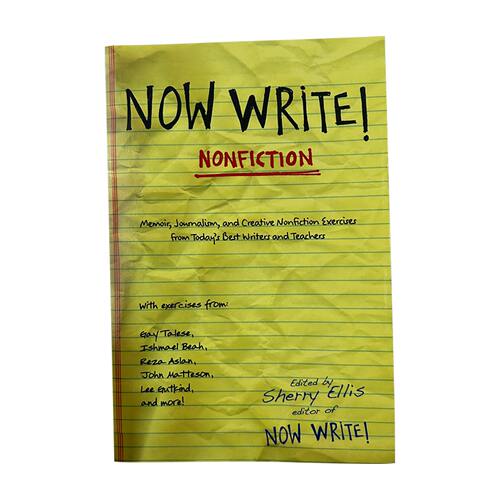 NOW WRITE!
NONFICTION
Memoir, Journalism, and Creative Nonfiction Exercises
from Today's Best Writers and Teachers
With exercises from:
Gay Talese,
Ishmael Beah,
Reza Aslan,
John Matteson,
Lee Gutkind,
and more!
Edited by
Sherry Ellis
editor of
NOW WRITE!